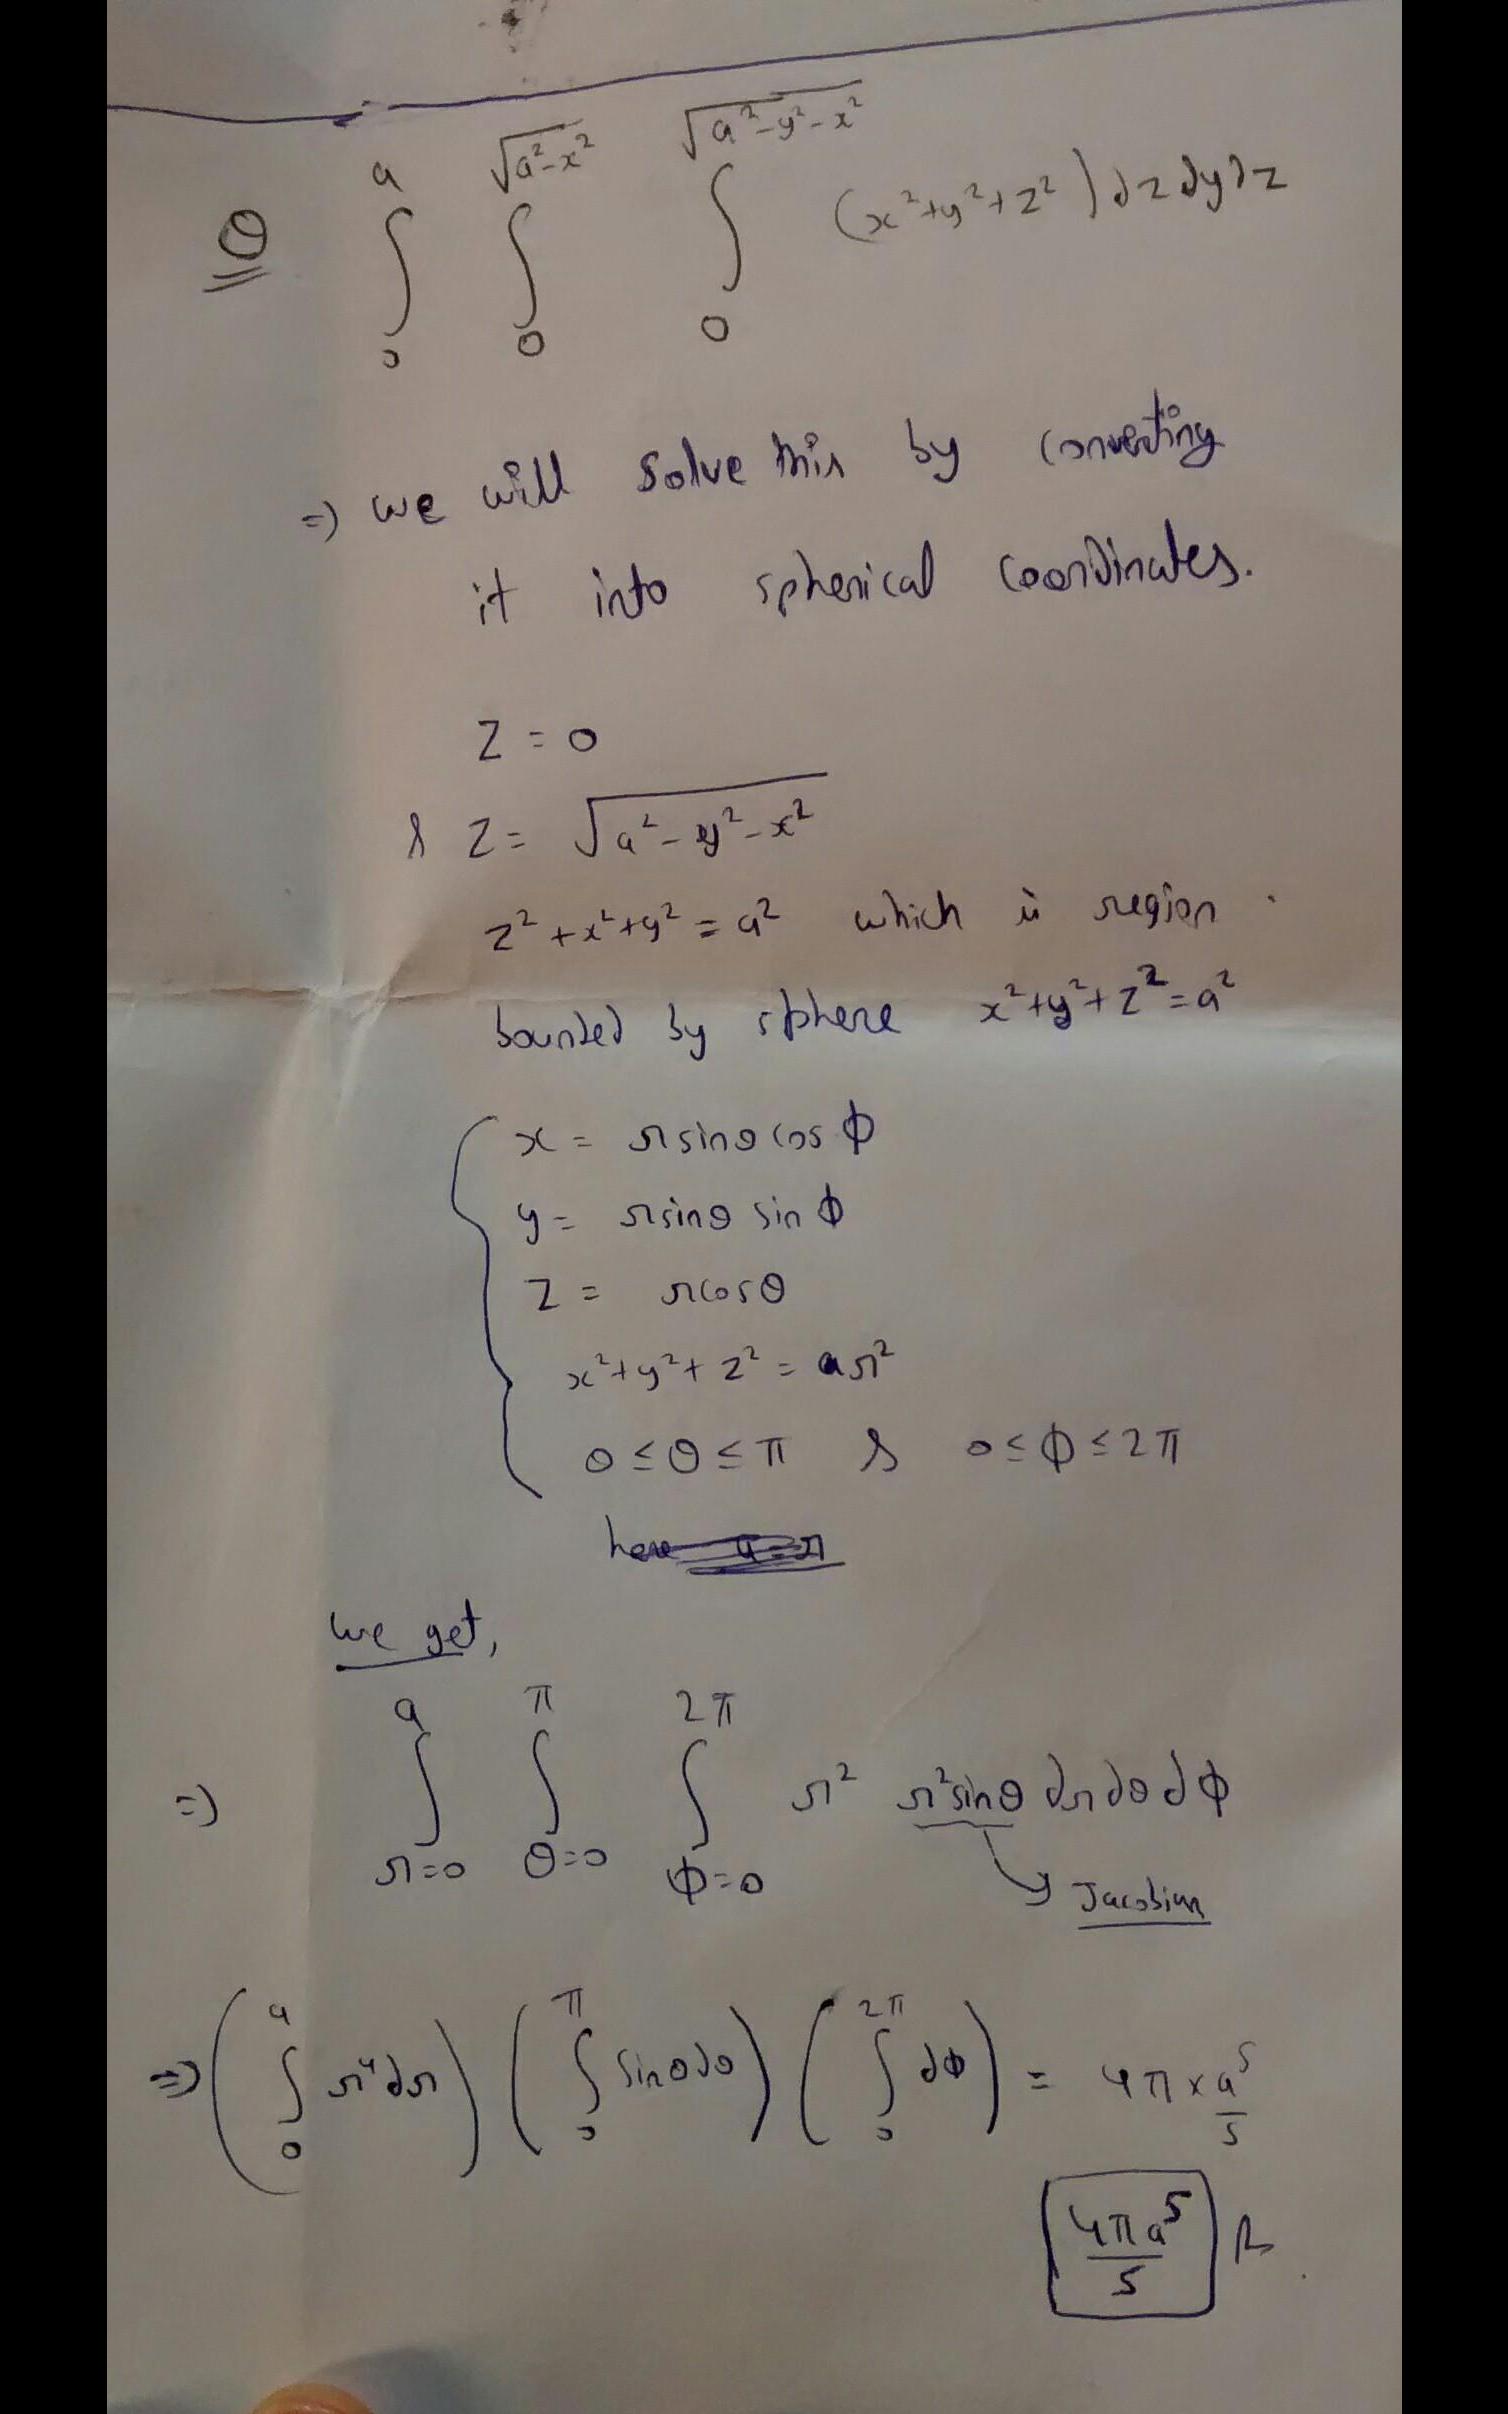 Q ∫₀^a ∫₀^√(a²-x²) ∫₀^√(a²-y²-x²) (x²+y²+z²) dz dy dz
=) we will solve this by converting
it into spherical coordinates.
z = 0
& z = √(a²-y²-x²)
z²+x²+y² = a² which is region
bounded by sphere x²+y²+z²=a²
x = r sinθ cos ϕ
y = r sinθ sin ϕ
z = r cosθ
x²+y²+z² = r²
0 ≤ θ ≤ π & 0 ≤ ϕ ≤ 2π
here a=r
we get,
=) ∫_{r=0}^a ∫_{θ=0}^π ∫_{ϕ=0}^{2π} r² r² sinθ dr dθ dϕ
Jacobian
=) (∫₀^a r⁴ dr) (∫₀^π sinθ dθ) (∫₀^{2π} dϕ) = 4π × a⁵/5
4πa⁵/5